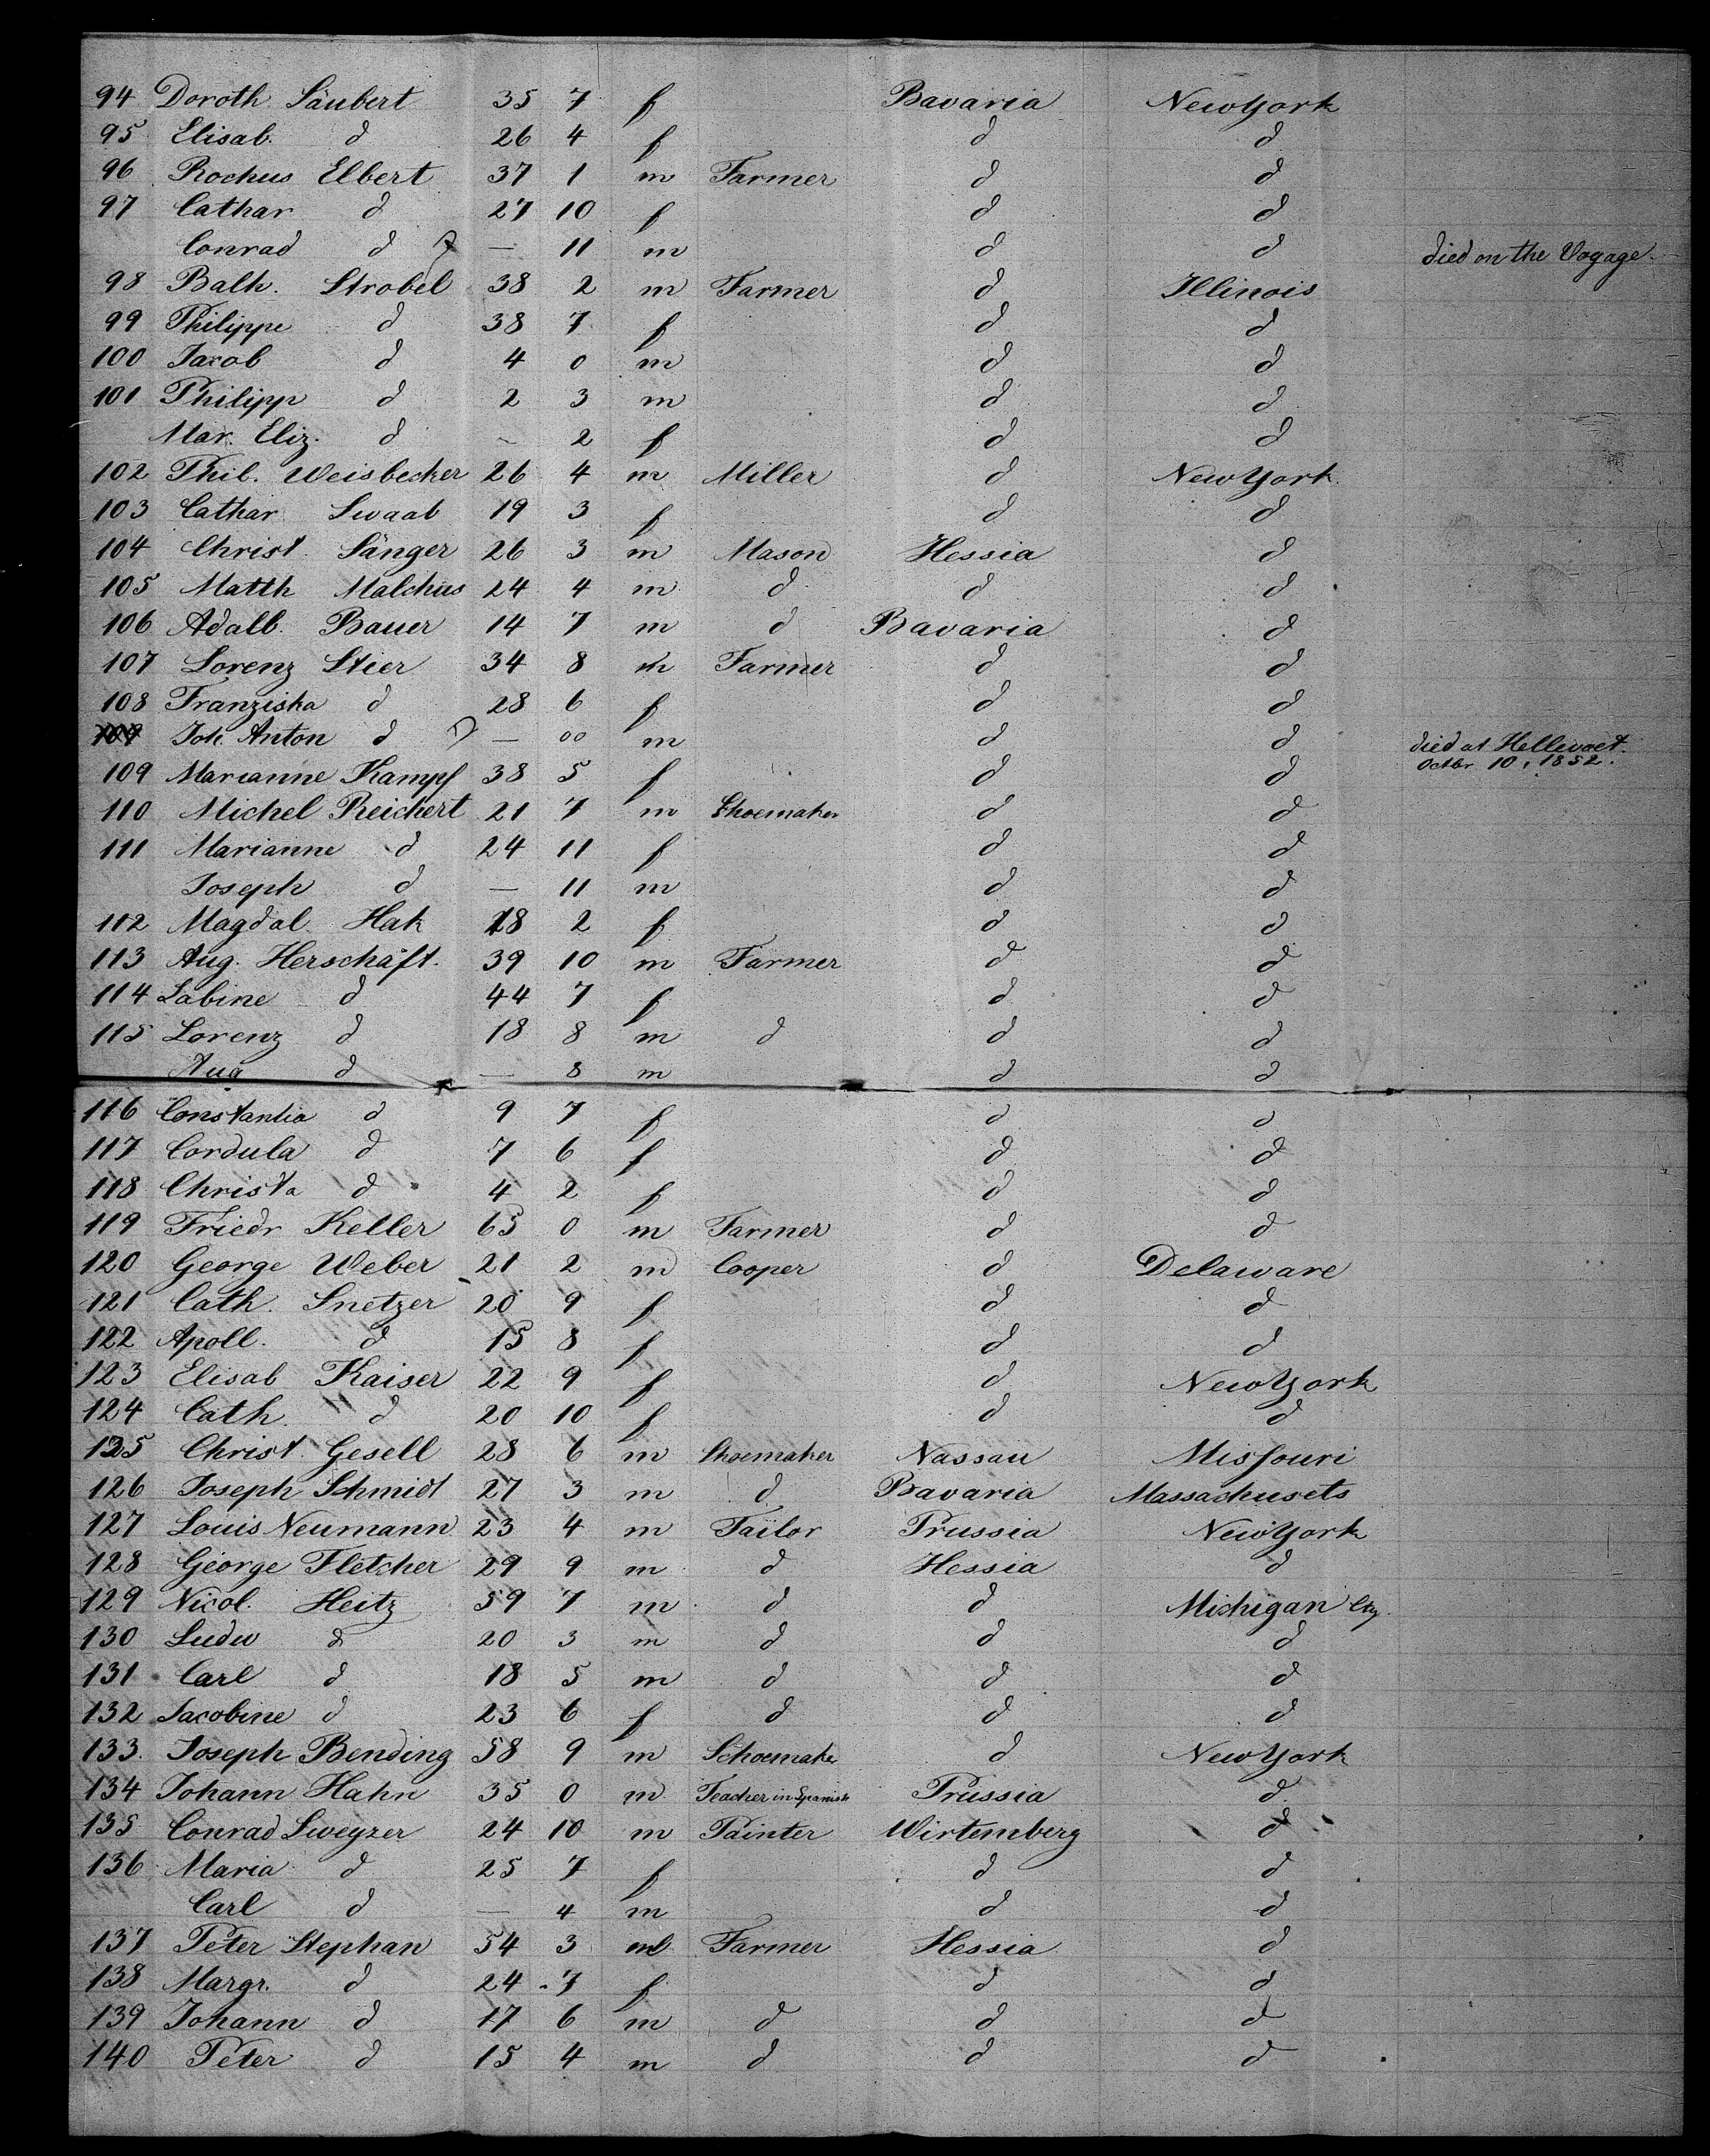 94 Doroth. Säubert 35 7 f Bavaria New York
95 Elisab. d 26 4 f d d
96 Rochus Elbert 37 1 m Farmer d d
97 Cathar d 27 10 f d d
Conrad d — 11 m d d died on the Voyage
98 Balth. Strobel 38 2 m Farmer d Illinois
99 Philippe d 38 7 f d d
100 Jacob d 4 0 m d d
101 Philipp d 2 3 m d d
Mar. Eliz. d – 2 f d d
102 Phil. Weisbecker 26 4 m Miller d New York
103 Cathar Swaab 19 3 f d d
104 Christ. Sänger 26 3 m Mason Hessia d
105 Matth Malchus 24 4 m d d d
106 Adalb. Bauer 14 7 m d Bavaria d
107 Lorenz Stier 34 8 m Farmer d d
108 Franziska d 28 6 f d d
109 Joh. Anton d — 00 m d d died at Hellevoet.
Octbr 10, 1852.
109 Marianne Kampf 38 5 f d d
110 Michel Reichert 21 7 m Shoemaker d d
111 Marianne d 24 11 f d d
Joseph d — 11 m d d
112 Magdal. Hak 18 2 f d d
113 Aug. Herschäft. 39 10 m Farmer d d
114 Sabine d 44 7 f d d
115 Lorenz d 18 8 m d d d
Aug d — 8 m d d
116 Constantia d 9 7 f d d
117 Cordula d 7 6 f d d
118 Christa d 4 2 f d d
119 Friedr Keller 65 0 m Farmer d d
120 George Weber 21 2 m Cooper d Delaware
121 Cath. Snetzer 20 9 f d d
122 Apoll. d 15 8 f d d
123 Elisab Kaiser 22 9 f d New York
124 Cath. d 20 10 f d d
125 Christ. Gesell 28 6 m Shoemaker Nassau Missouri
126 Joseph Schmidt 27 3 m d Bavaria Massachusets
127 Louis Neumann 23 4 m Tailor Prussia New York
128 George Fletcher 29 9 m d Hessia d
129 Nicol. Heitz 59 7 m d d Michigan Cty.
130 Ludw d 20 3 m d d d
131 Carl d 18 5 m d d d
132 Jacobine d 23 6 f d d d
133. Joseph Bending 58 9 m Schoemaker d New York
134 Johann Hahn 35 0 m Teacher in Spanish Prussia d
135 Conrad Sweyzer 24 10 m Painter Wirtemberg d
136 Maria d 25 7 f d d
Carl d — 4 m d d
137 Peter Stephan 54 3 m Farmer Hessia d
138 Margr. d 24 7 f d d
139 Johann d 17 6 m d d d
140 Peter d 15 4 m d d d